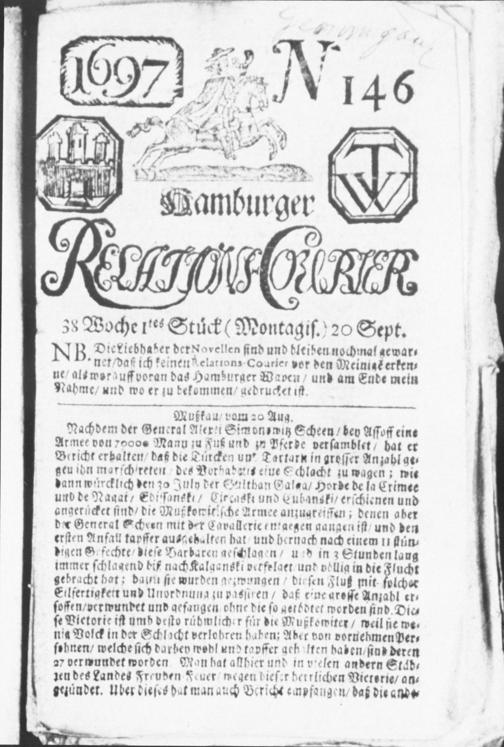 1697
N 146
TW
Hamburger
RELATIONS COURIER
38 Woche 1tes Stück (Montagis.) 20 Sept.
NB. Die Liebhaber der Novellen sind und bleiben nochmal gewar-
net/ daß ich keinen Relations-Courier vor den Meinigē erken-
ne/ als worauff voran das Hamburger Wapen/ und am Ende mein
Nahme/ und wo er zu bekommen/ gedrucket ist.
Mußkau/ vom 20 Aug.
Nachdem der General Alexei Simonowitz Scheen/ bey Assoff eine
Armee von 70000 Mann zu Fuß und zu Pferde versamblet/ hat er
Bericht erhalten/ daß die Türcken und Tartarn in grosser Anzahl ge-
gen ihn marschireten/ des Vorhabens eine Schlacht zu wagen; wie
dann würcklich den 30 July der Sulthan Galga/ Horde de la Crimee
und de Nagai/ Circaski und Cubanski/ erschienen und
angerücket sind/ die Mußkowitische Armee anzugreiffen; denen aber
der General Scheen mit der Cavallerie entgegen gangen ist/ und den
ersten Anfall tapffer ausgehalten hat/ und hernach nach einem 11 stün-
digen Gefechte/ diese Barbaren geschlagen/ und in 3 Stunden lang
immer schlagend biß nach Kalganski verfolget und völlig in die Flucht
gebracht hat; dann sie wurden gezwungen/ diesen Fluß mit solcher
Eilfertigkeit und Unordnung zu passiren/ daß eine grosse Anzahl er-
soffen/ verwundet und gefangen/ ohne die so getödtet worden sind. Die-
se Victorie ist umb desto rühmlicher für die Mußkowiter/ weil sie we-
nig Volck in der Schlacht verlohren haben; Aber von vornehmen Per-
sohnen/ welche sich darbey wohl und tapffer gehalten haben/ sind deren
27 verwundet worden. Man hat allhier und in vielen andern Städ-
ten des Landes Freuden-Feuer/ wegen dieser herrlichen Victorie/ an-
gezündet. Uber dieses hat man auch Bericht empfangen/ daß die ande-